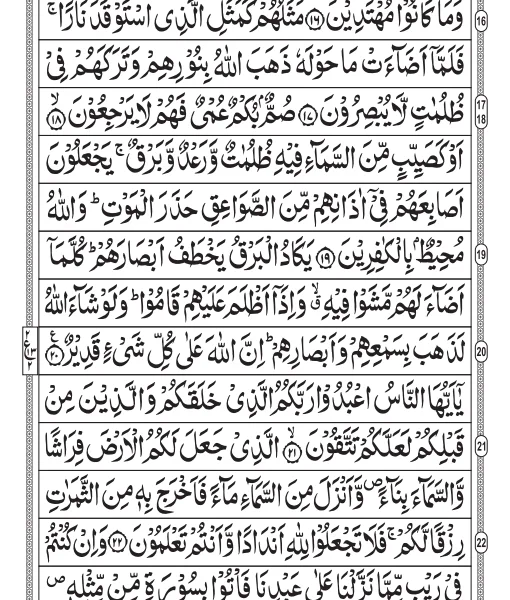 وَمَا كَانُوْا مُهْتَدِيْنَ ﴿۱۶﴾ مَثَلُهُمْ كَمَثَلِ الَّذِى اسْتَوْقَدَ نَارًا ۚ
16
فَلَمَّاۤ اَضَآءَتْ مَا حَوْلَهٗ ذَهَبَ اللّٰهُ بِنُوْرِهِمْ وَتَرَكَهُمْ فِىْ
ظُلُمٰتٍ لَّا يُبْصِرُوْنَ ﴿۱۷﴾ صُمٌّۢ بُكْمٌ عُمْىٌ فَهُمْ لَا يَرْجِعُوْنَ ۙ﴿۱۸﴾
17
18
اَوْ كَصَيِّبٍ مِّنَ السَّمَآءِ فِيْهِ ظُلُمٰتٌ وَّرَعْدٌ وَّبَرْقٌ ۚ يَجْعَلُوْنَ
اَصَابِعَهُمْ فِىْۤ اٰذَانِهِمْ مِّنَ الصَّوَاعِقِ حَذَرَ الْمَوْتِ ؕ وَاللّٰهُ
مُحِيْطٌۢ بِالْكٰفِرِيْنَ ﴿۱۹﴾ يَكَادُ الْبَرْقُ يَخْطَفُ اَبْصَارَهُمْ ؕ كُلَّمَاۤ
19
اَضَآءَ لَهُمْ مَّشَوْا فِيْهِ ۙ وَاِذَاۤ اَظْلَمَ عَلَيْهِمْ قَامُوْا ؕ وَلَوْ شَآءَ اللّٰهُ
لَذَهَبَ بِسَمْعِهِمْ وَاَبْصَارِهِمْ ؕ اِنَّ اللّٰهَ عَلٰى كُلِّ شَىْءٍ قَدِيْرٌ ﴿۲۰﴾
20
۲
ع
۱۳
۲
يٰۤاَيُّهَا النَّاسُ اعْبُدُوْا رَبَّكُمُ الَّذِىْ خَلَقَكُمْ وَالَّذِيْنَ مِنْ
قَبْلِكُمْ لَعَلَّكُمْ تَتَّقُوْنَ ۙ﴿۲۱﴾ الَّذِىْ جَعَلَ لَكُمُ الْاَرْضَ فِرَاشًا
21
وَّالسَّمَآءَ بِنَآءً ۪ وَّاَنْزَلَ مِنَ السَّمَآءِ مَآءً فَاَخْرَجَ بِهٖ مِنَ الثَّمَرٰتِ
رِزْقًا لَّكُمْ ۚ فَلَا تَجْعَلُوْا لِلّٰهِ اَنْدَادًا وَّاَنْتُمْ تَعْلَمُوْنَ ﴿۲۲﴾ وَاِنْ كُنْتُمْ
22
فِىْ رَيْبٍ مِّمَّا نَزَّلْنَا عَلٰى عَبْدِنَا فَاْتُوْا بِسُوْرَةٍ مِّنْ مِّثْلِهٖ ۪